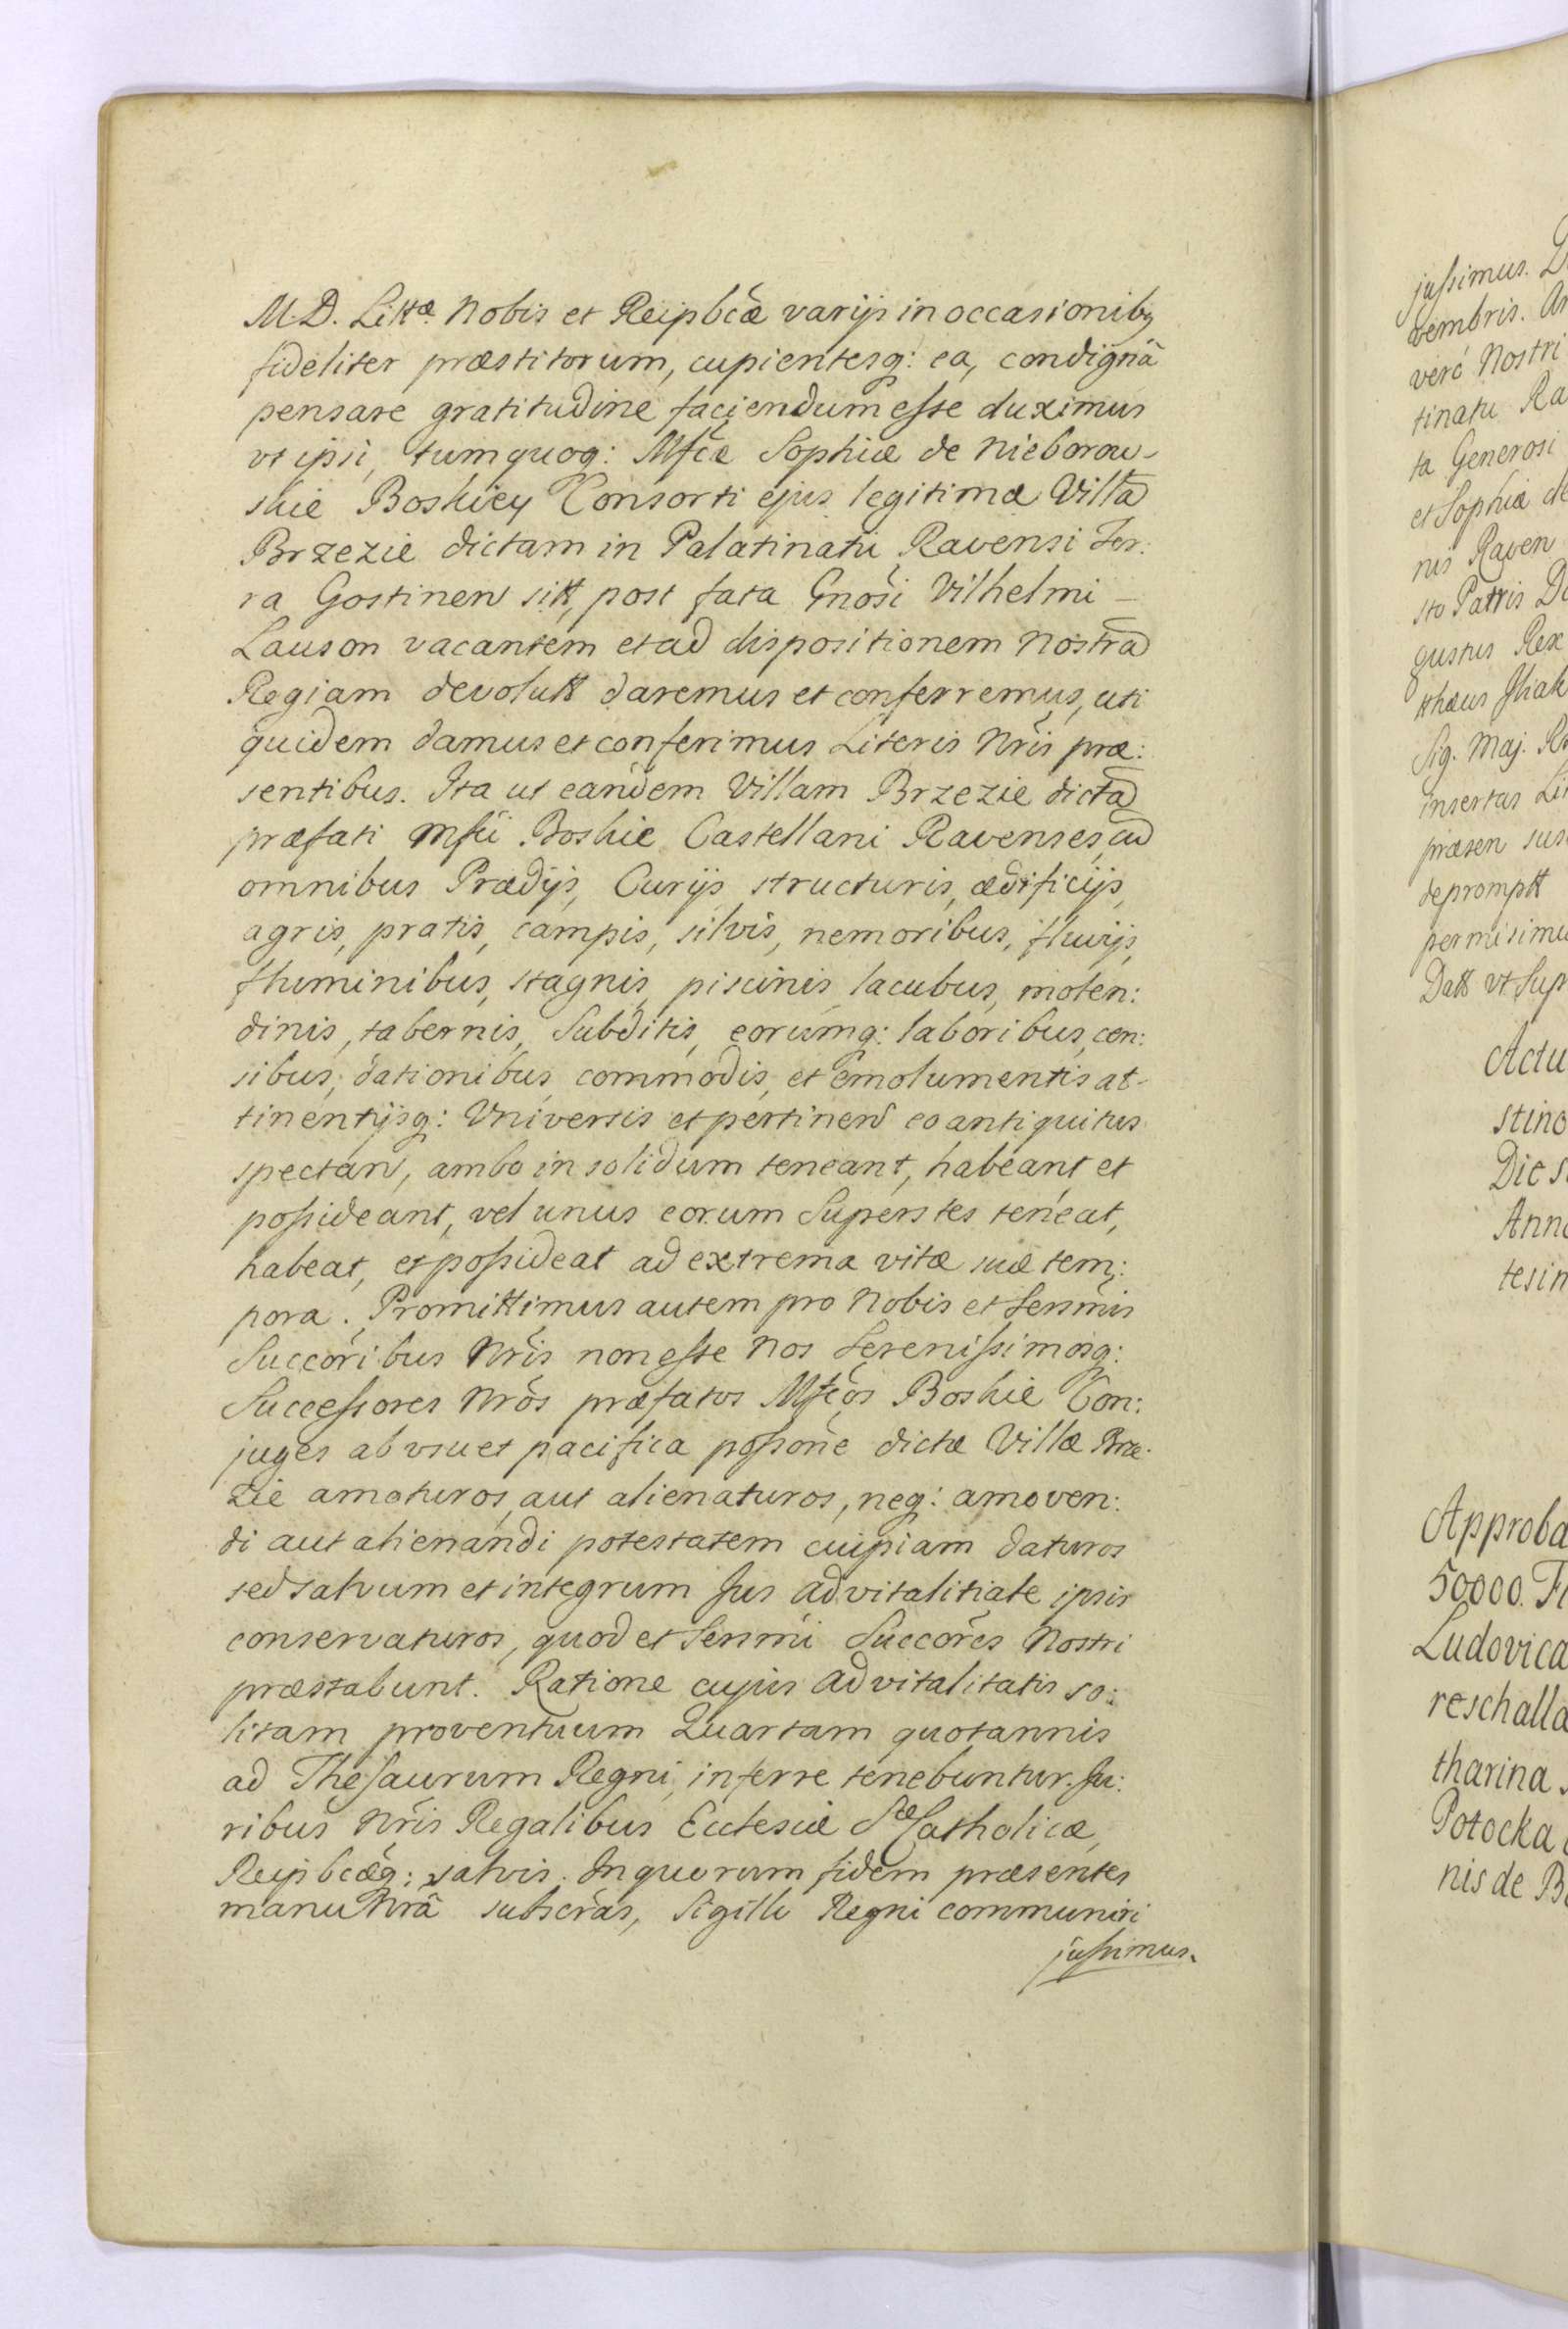 M.D. Littæ. Nobis et Reipbcæ varijs in occasionibȝ
fideliter præstitorum, cupientesq: ea, condignâ
pensare gratitudine faciendum esse duximus
vt ipsi, tum quoq: Mfcæ Sophiæ de Nieborow-
skie Boskiey Consorti ejus legitimæ Villã
Brzezie dictam in Palatinatu Ravensi Ter:
ra Gostinen sitt, post fata Gnosi Vilhelmi –
Lauson vacantem et ad dispositionem Nostrã
Regiam devolutt daremus et conferremus, uti
quidem damus et conferimus Literis Nris præ:
sentibus. Ita ut eandem Villam Brzezie dictã
præfati Mfci Boskie Castellani Ravenses, cũ
omnibus Prædijs, Curijs, structuris, ædificijs,
agris, pratis, campis, silvis, nemoribus, fluvijs,
fluminibus, stagnis, piscinis, lacubus, molen:
dinis, tabernis, Subditis, eorumq: laboribus, cen:
sibus, dationibus, commodis, et emolumentis at-
tinentijsq: Vniversis et pertinen eo antiquitus
spectan, ambo in solidum teneant, habeant et
possideant, vel unus eorum Superstes teneat,
habeat, et possideat ad extrema vitæ suæ tem:
pora. Promittimus autem pro Nobis et Sermis
Succoribus Nris non esse Nos Serenissimosq:
Successores Nros præfatos Mfcos Boskie Con:
juges ab vsu et pacifica possone dictæ Villæ Brze-
zie amoturos, aut alienaturos, neq: amoven:
di aut alienandi potestatem cuipiam daturos
sed salvum et integrum Jus advitalitiate ipsis
conservaturos, quod et Sermi Succores Nostri
præstabunt. Ratione cujus advitalitatis so:
litam proventuum Quartam quotannis
ad Thesaurum Regni inferre tenebuntur. Ju:
ribus Nris Regalibus Ecclesiæ Sæ Catholicæ,
Reipbcæq: salvis. In quorum fidem præsentes
manu Nrâ subscras, Sigillo Regni communiri
jussimus.
jussimus.
vembris.
vero Nostri
tinatu Ra
ta Generosi
et Sophiæ de
nis Raven
sto Patris
gustus Rex
Sig. Maj.
insertas
præsen
depromptt
permisimu
Datt vt Sup
Actu
stino
Die
Anno
tesim
Approba
50000. Fl
Ludovica
reschalla
tharina
Potocka
nis de B